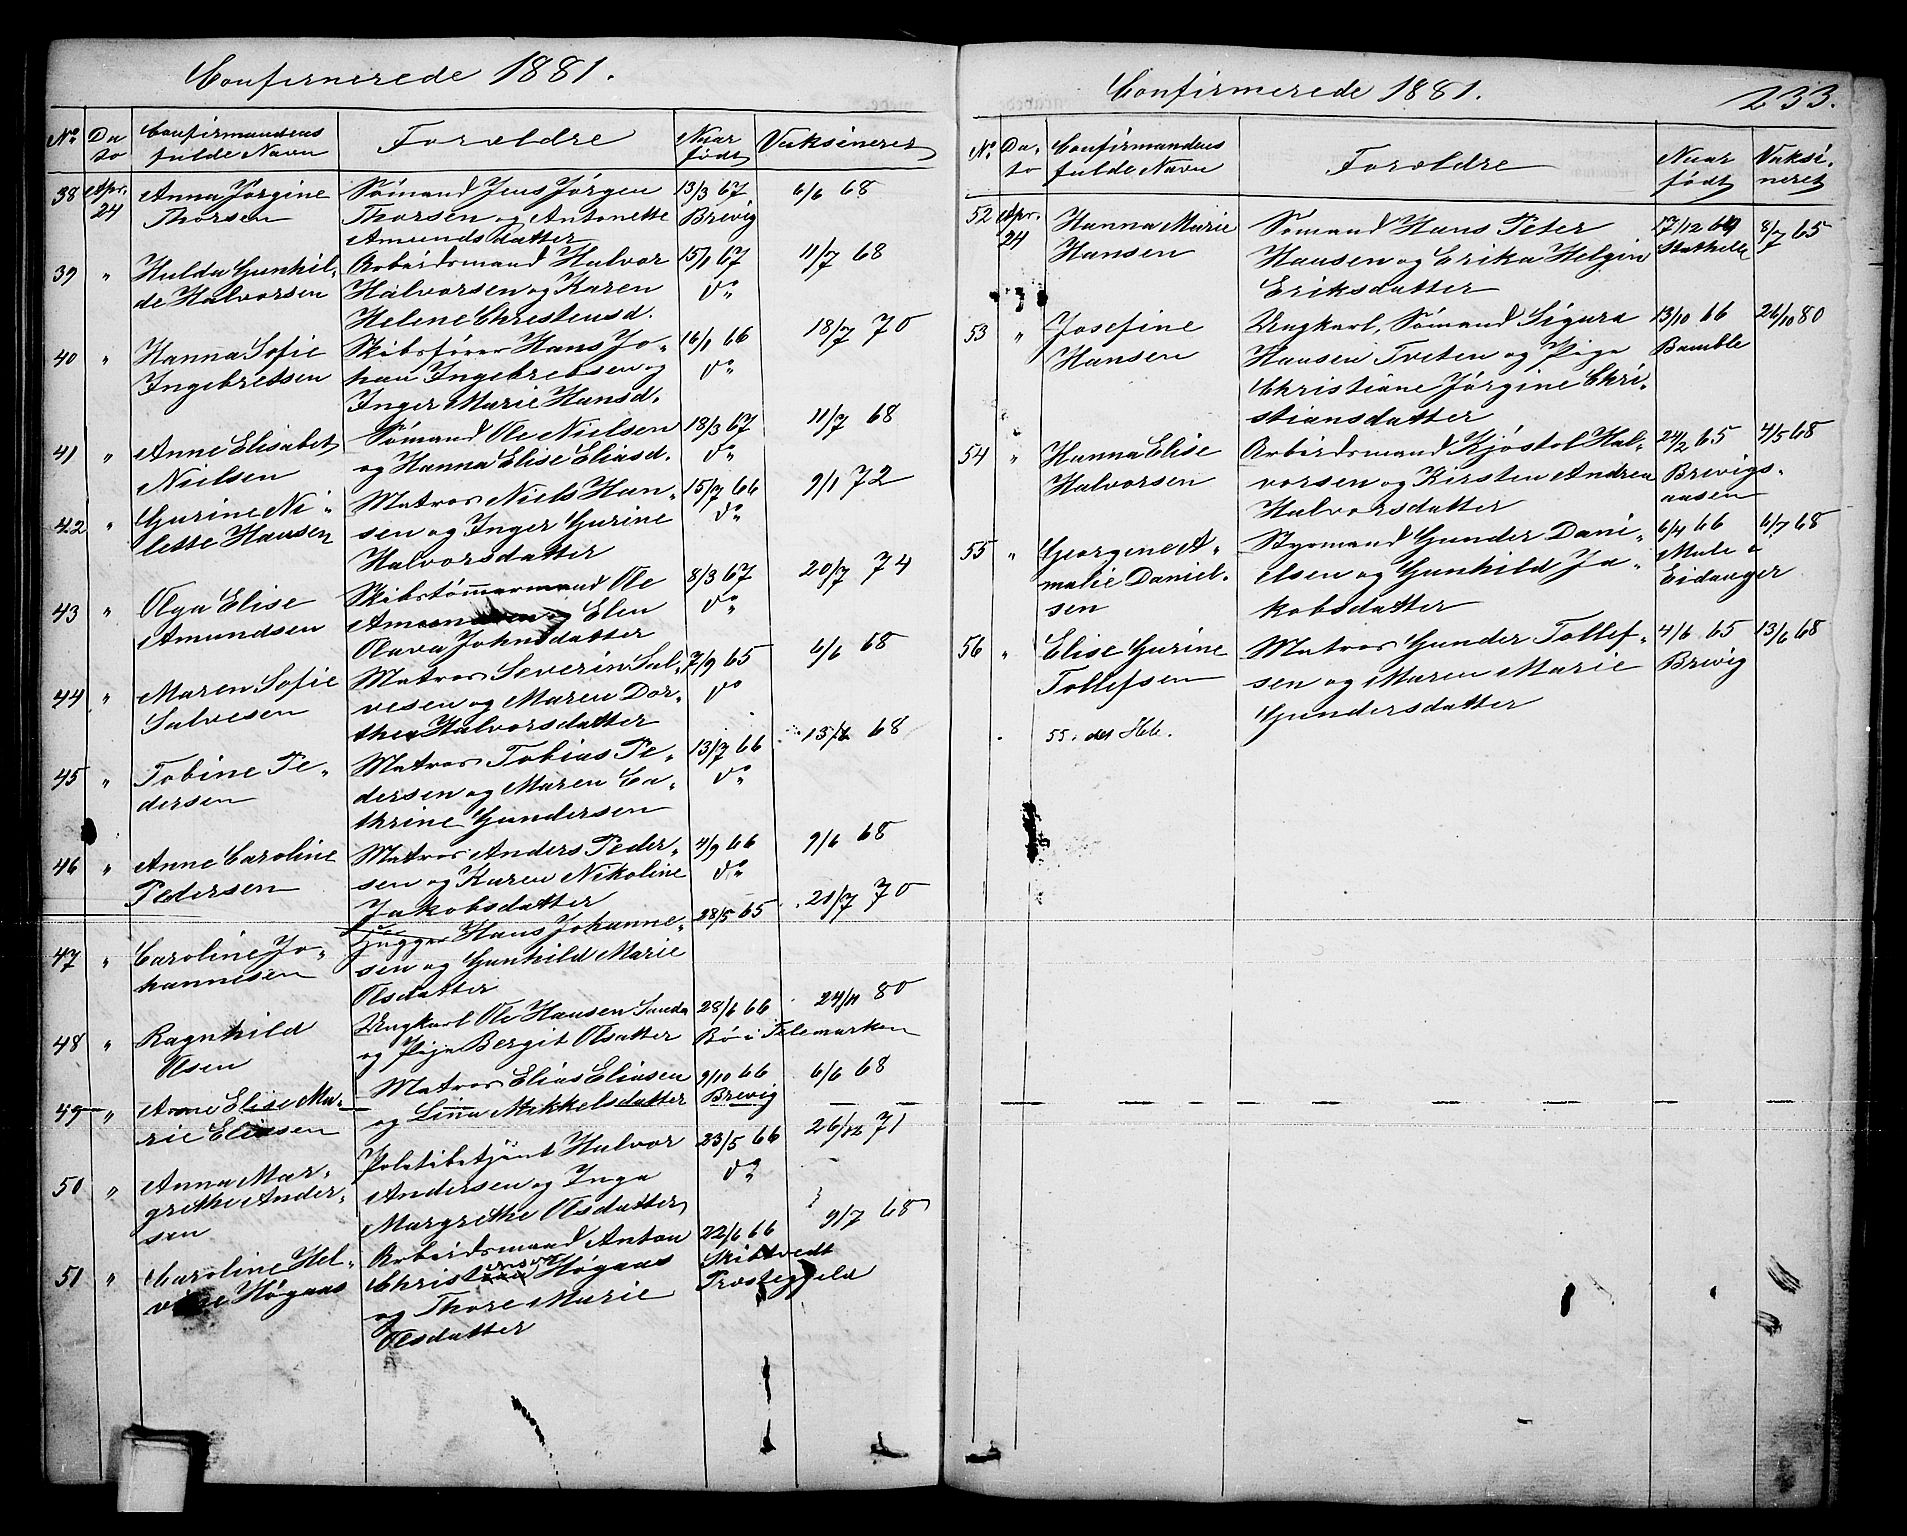 Confirmerede 1881.
No Da to Confirmandens fulde Navn Forældre Naar født Vaksineret
38 Apr. 24 Anna Jørgine Sømand Jens Jørgen 13/3 67 6/6 68
Thorsen Thorsen og Antonette Brevig
Amundsdatter
39 " Hulda Gunhil- Arbeidsmand Halvor 15/1 67 11/7 68
de Halvorsen Halvorsen og Karen do
Helene Christensd.
40 " Hanna Sofie Skibsfører Hans Jo- 16/1 66 18/7 70
Ingebretsen han Ingebretsen og do
Inger Marie Hansd.
41 " Anne Elisabet Sømand Ole Nielsen 18/3 67 11/7 68
Nielsen og Hanna Elise Eliasd. do
42 " Gurine Ni- Matros Niels Han- 15/7 66 9/1 72
lette Hansen sen og Inger Gurine do
Halvorsdatter
43 " Olga Elise Skibstømmermand Ole 8/3 67 20/7 74
Amundsen Amundsen og Elen do
Olava Johnsdatter
44 " Maren Sofie Matros Severin Sal- 7/9 65 6/6 68
Salvesen vesen og Maren Dor- do
thea Halvorsdatter
45 " Tobine Pe- Matros Tobias Pe- 13/7 66 68
dersen dersen og Maren Ca- do
thrine Gundersen
46 " Anne Caroline Matros Anders Peder- 4/9 66 9/6 68
Pedersen sen og Karen Nikoline do
Jakobsdatter
47 " Caroline Jo- Hugger Hans Johanne- 28/5 65 21/7 70
hannesen sen og Gunhild Marie
Olsdatter
48 " Ragnhild Ungkarl Ole Hansen Sanda 28/6 66 24/11 80
Olsen og Pige Bergit Olsatter Bø i Telemarken
49 " Anne Elise Ma- Matros Elias Eliasen 9/10 66 6/6 68
rie Eliasen og Lina Mikkelsdatter Brevig
50 " Anna Mar- Politibetjent Halvor 23/5 66 26/12 71
grethe Ander- Andersen og Inga do
sen Margrethe Olsdatter
51 " Caroline Hel- Arbeidsmand Anton 22/6 66 9/7 68
vine Høgaas Høgaas Skibtvedt
og Thore Marie Præstegjeld
Olsdatter
Confirmerede 1881. 233.
No Da- to Confirmandens fulde Navn Forældre Naar født Vaksi- neret
52 Apr. 24 Hanna Marie Sømand Hans Peter 17/12 64 8/7 65
Hansen Hansen og Erika Helgin Stathelle
Eriksdatter
53 " Josefine Ungkarl, Sømand Sigura 13/10 66 26/10 80
Hansen Hansen Tveten og Pige Bamble
Christiane Jørgine Chri-
stiansdatter
54 " Hanna Elise Arbeidsmand Kjøstol Hal- 24/2 65 4/5 68
Halvorsen vorsen og Kirsten Andrea Brevigs-
Halvorsdatter aasen
55 " Georgine A- Styrmand Gunder Dani- 6/4 66 6/7 68
malie Daniel- elsen og Gunhild Ja- Mule i
sen kobsdatter Eidanger
56 " Elise Gurine Matros Gunder Tollef- 4/6 65 13/6 68
Tollefsen sen og Maren Marie Brevig
Gundersdatter
55. det Hele.